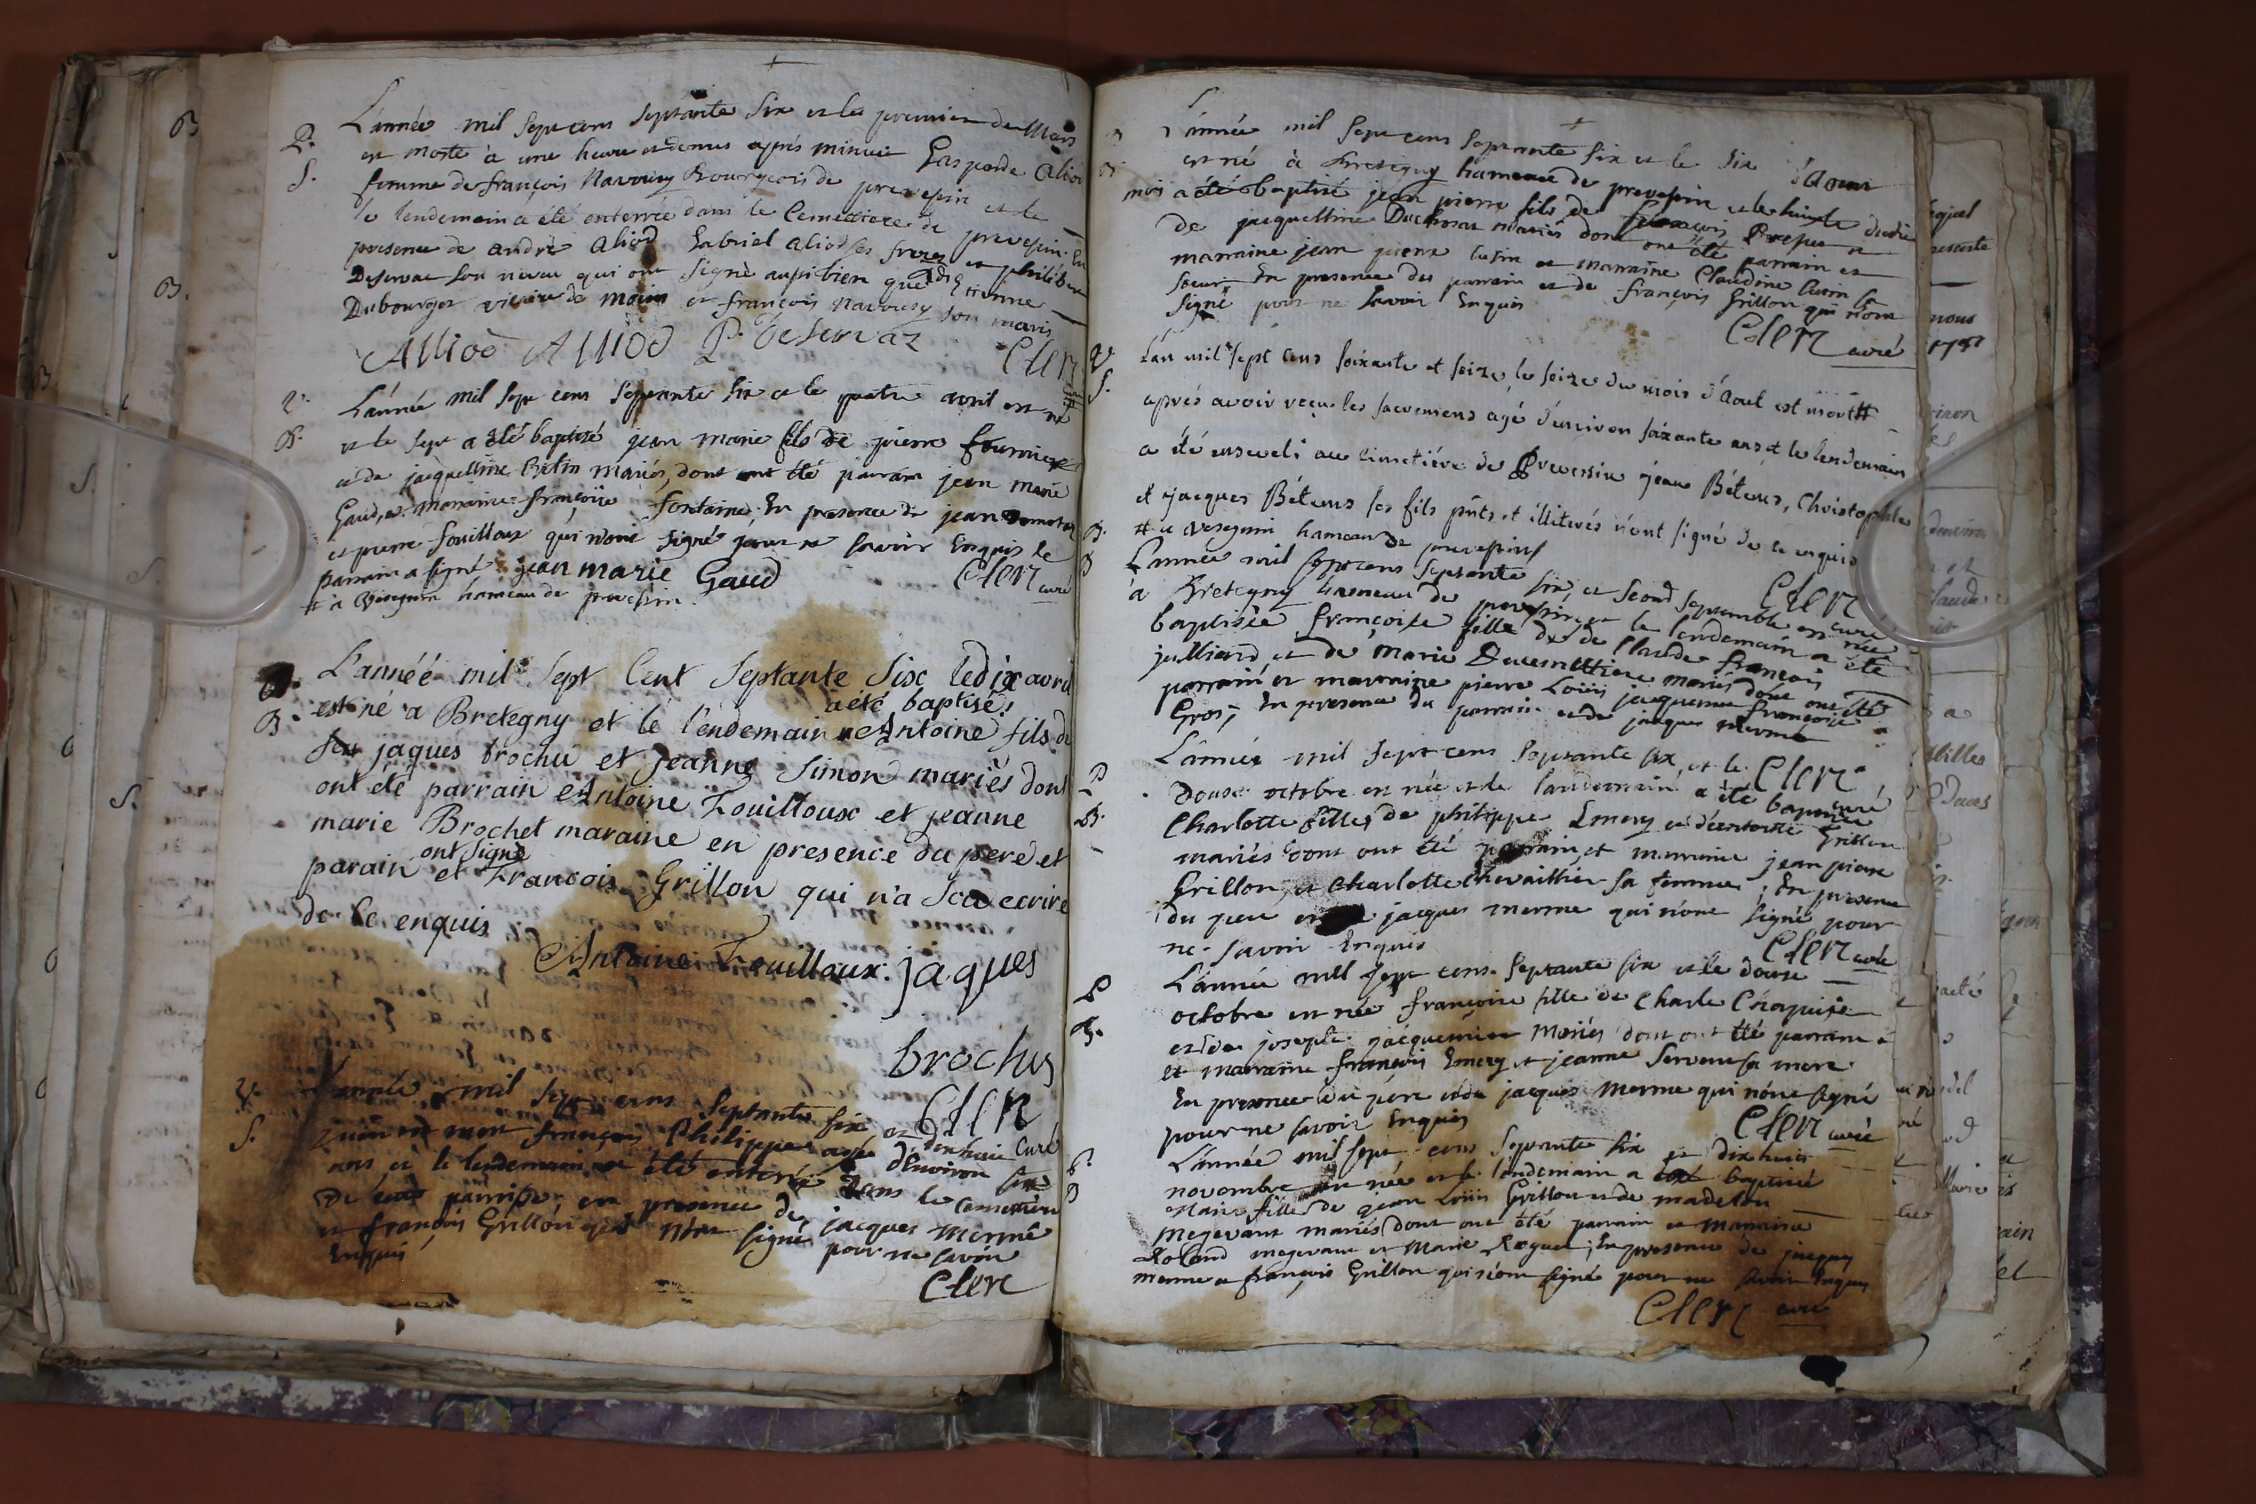 L'année mil sept cens septante six et le premier de Mars
est morte à une heure et demis après minuit Gasparde Aliod
femme de françois Navoury Bourgeois de prevesin et le
lendemain a été enterrée dans le Cemetiere de prevesin. En
presence de andré Aliod Gabriel aliod ses freres et philibert
Deservaz son neveu qui ont signé aussi bien que Etienne
Dubourget vicaire de moins et françois Navoury son maris
Alliod Alliod P. Deservaz
Clerc curé
L'année mil sept cens septante six et le quatre avril est né #
et le sept a été baptisé jean marie fils de pierre fournier
et de jacquelline Betin mariés, dont ont été parrain jean marie
Gaud, et marraine françoise fontaine. En presence de jean
et pierre fouilloux qui n'ont signé pour ne savoir Enquis le
parrain a signé jean marie Gaud
Clerc curé
# à Vesegnin hameau de prevesin
L'année mil sept Cent Septante Six le dix avril
est né a Bretegny et le lendemain a été baptisé Antoine fils de
feu jaques brochu et jeanne Simon mariés dont
ont été parrain Antoine Fouilloux et jeanne
marie Brochet maraine en presence du pere et
parain ont signé et Francois Grillon qui n'a sceu ecrire
de ce enquis
Antoine Fouilloux jaques
brochus
Clerc curé
L'année mil sept cens septante six et dix huit
juin est mort françois Philippe agé d'Environ six
ans et le lendemain a été enterré dans le cemetiere
de parroisse en presence de jacques Merme
et françois Grillon qui n'ont signé pour ne savoir
Enquis
Clerc
L'année mil sept cens septante six et le six d'Aout
est né à Bretegny hameau de prevesin et le dudit
mois a été baptisé jean pierre fils de françois et
de jacquelline Duchosal mariés dont ont été parrain et
marraine jean pierre lutin et marraine Claudine lutin la
soeur En presence du parrain et de françois Grillon qui n'ont
signé pour ne savoir Enquis
Clerc curé
L'an mil sept cens soixante et seize, le seize du mois d'Aout est mort #
après avoir reçu les sacremens agé d'environ soixante ans et le lendemain
a été enseveli au cimetiére de Prevessin jean Bétems, Christophle
et jacques Bétems ses fils pnts et illitérés n'ont signé de ce enquis
# à Vesegnin hameau de prevesin
Clerc curé
L'année mil sept cens septante six, et second septembre est née
à Bretegny hameau de prevesin et le lendemain a été
baptisée françoise fille de Claude françois
julliard et de Marie Ducimettiere mariés dont ont été
parrain et marraine pierre Loüis jacquemet françoise
Gros; En presence du parrain et de jacques merme
Clerc curé
L'année mil sept cens septante six et le
douse octobre est née et le lendemain a été baptisée
Charlotte fille de philippe Emery et d'Antoinette Grillon
mariés dont ont été parrain et marraine jean pierre
Grillon, et Charlotte Chevaillier sa femme; En presence
du pere et de jacques merme qui n'ont signé pour
ne savoir Enquis
Clerc curé
L'année mil sept cens septante six et le douse
octobre est née françoise fille de Charle Chapuise
et de josephte jacquemier Mariés dont ont été parrain
et marraine françois Emery et jeanne Servent sa mere
En presence du père et de jacques Merme qui n'ont signé
pour ne savoir Enquis
Clerc curé
L'année mil sept cens septante six et dix huit
novembre est née et le lendemain a été baptisée
Marie fille de jean Loüis Grillon et de madelon
Megevant mariés dont ont été parrain et Marraine
Roland megevant et Marie Roguet; En presence de jacques
merme et françois Grillon qui n'ont signé pour ne savoir Enquis
Clerc curé